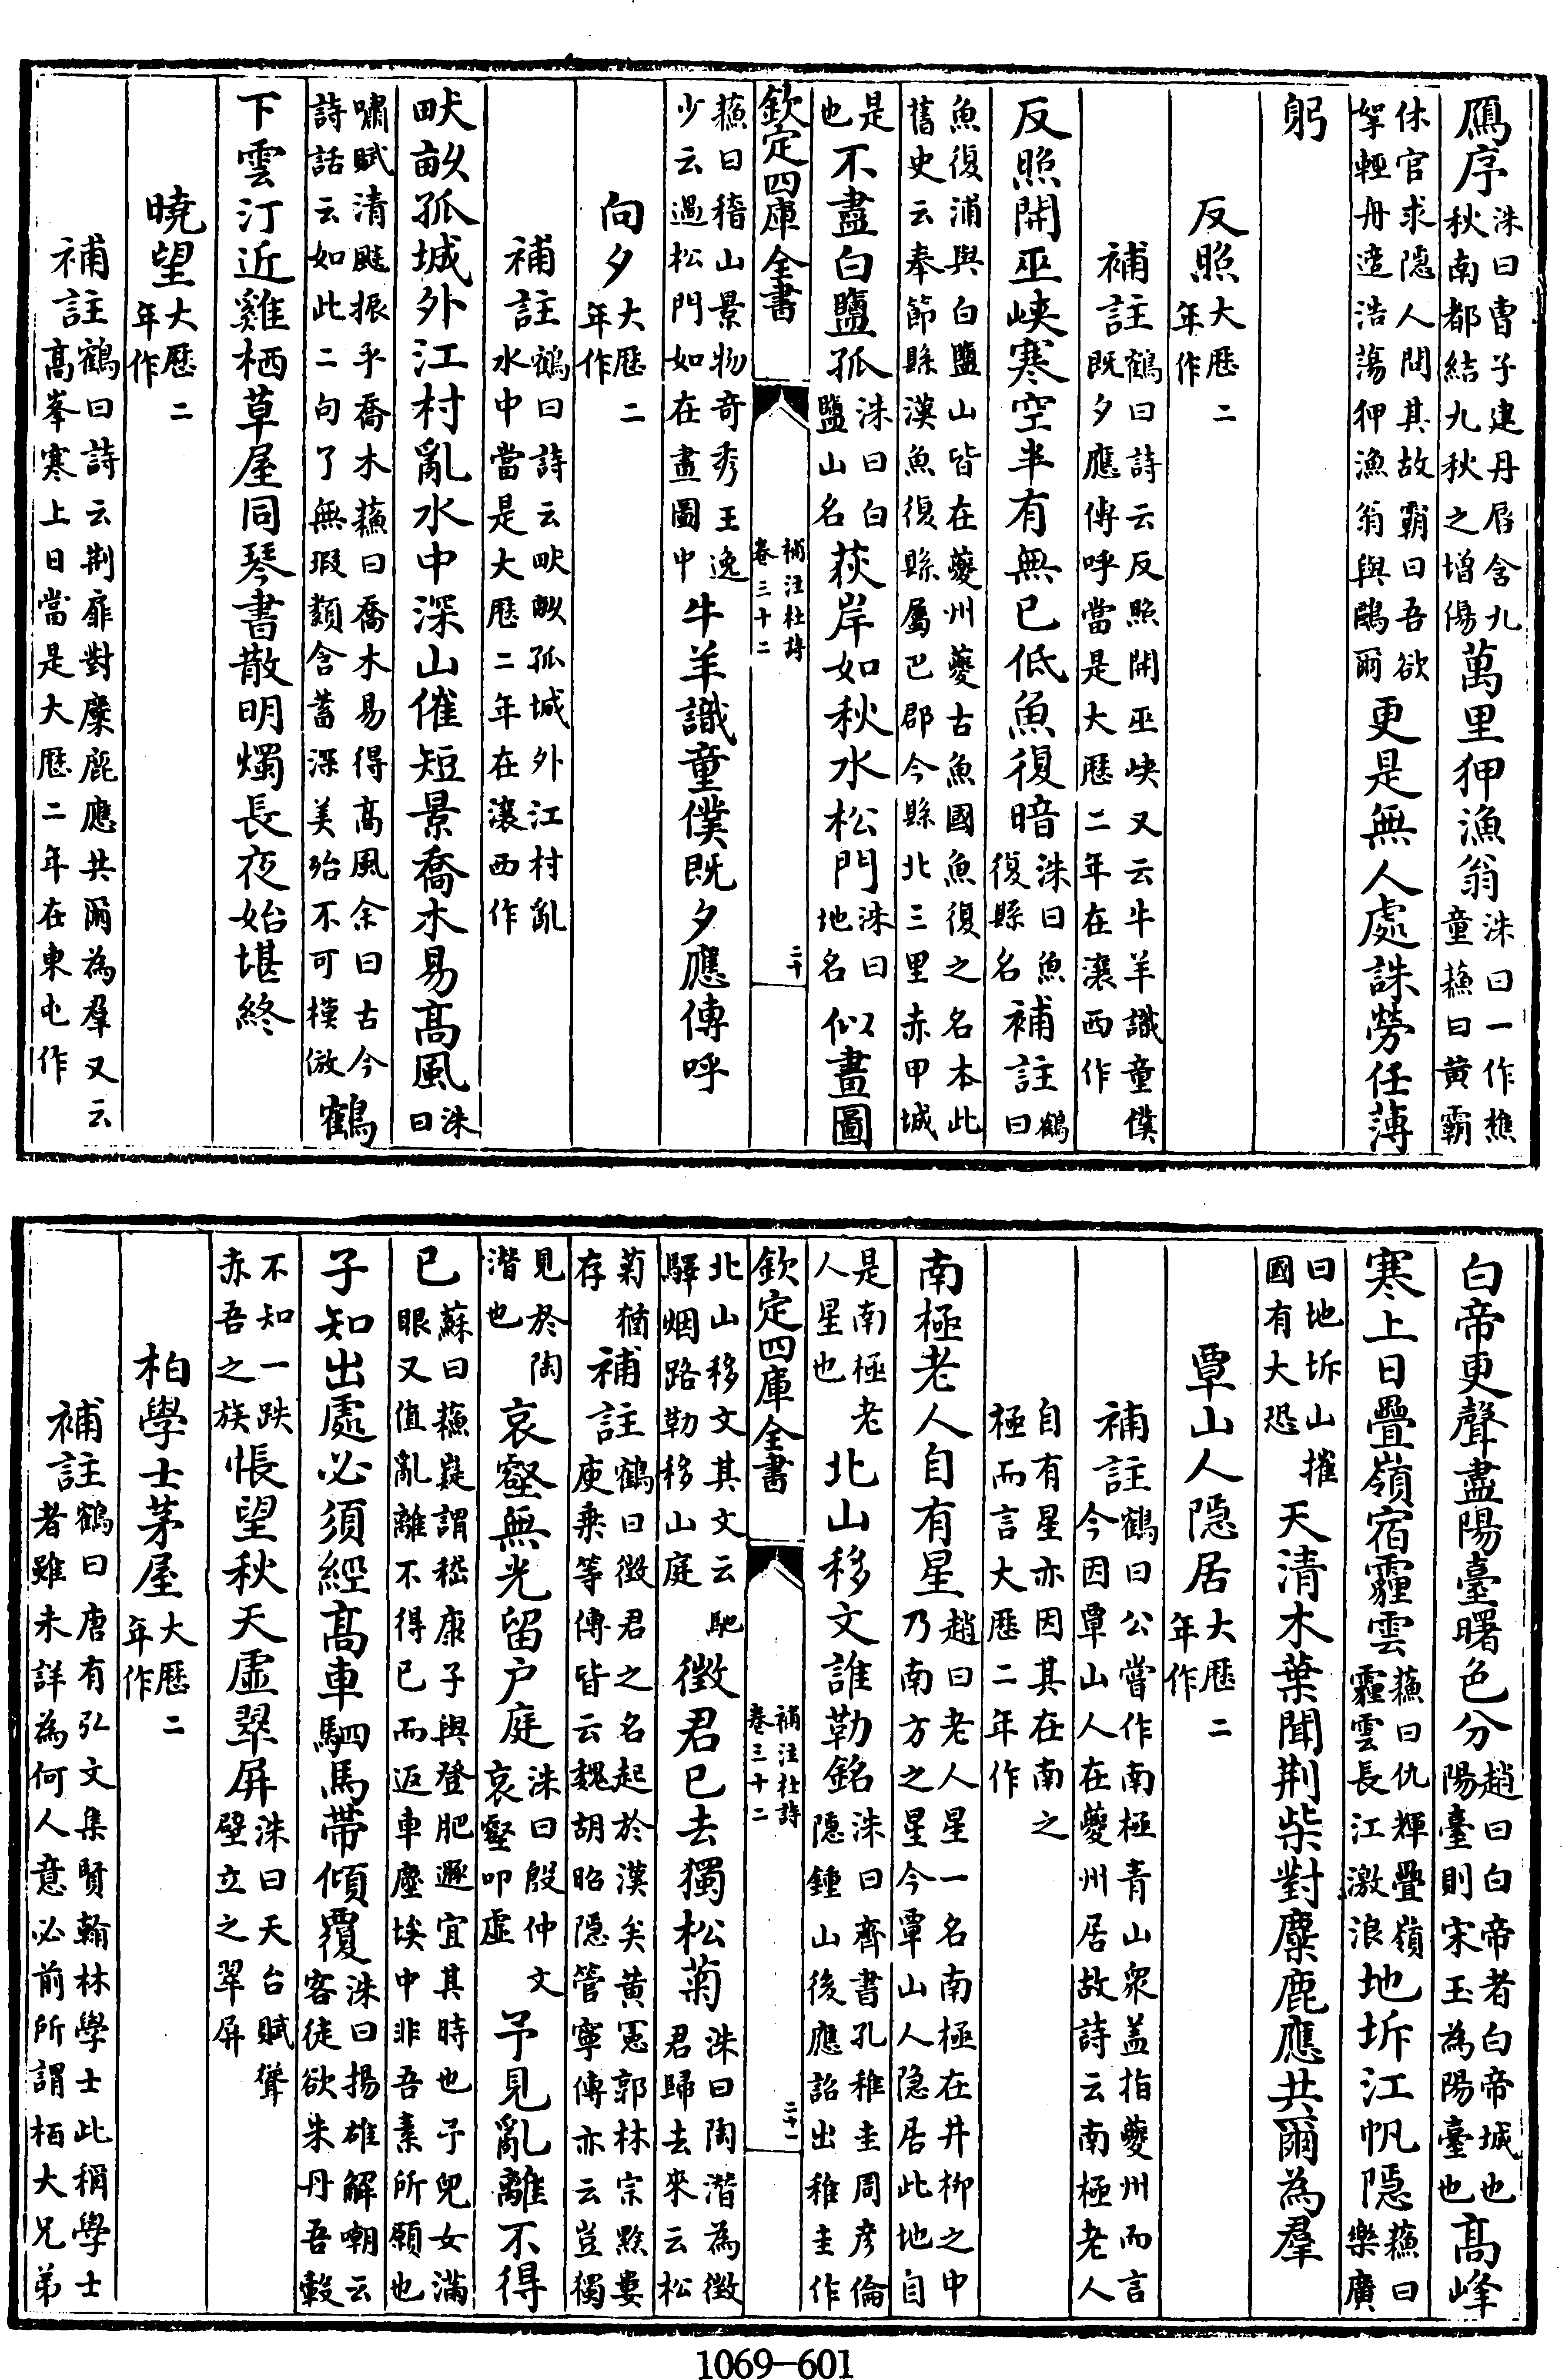 鴈序洙曰曹子建丹脣含九秋南都結九秋之增傷萬里狎漁翁洙曰一作樵童蘓曰黄霸
休官求隠人問其故霸曰吾欲挐輕舟造浩蕩狎漁翁與鷗爾更是無人處誅茅任薄
躬
反照大厯二年作
補註鶴曰詩云反照開巫峽又云牛羊識童僕既夕應傳呼當是大厯二年在瀼西作
反照開巫峽寒空半有無已低魚復暗洙曰魚復縣名補註鶴曰
魚復浦與白鹽山皆在夔州夔古魚國魚復之名本此舊史云奉節縣漢魚復縣屬巴郡今縣北三里赤甲城
是也不盡白鹽孤洙曰白鹽山名荻岸如秋水松門洙曰地名似畫圖
欽定四庫全書 補注杜詩卷三十二 二十
蘓曰稽山景物奇秀王逸少云過松門如在畫圖中牛羊識童僕既夕應傳呼
向夕大厯二年作
補註鶴曰詩云畎畝孤城外江村亂水中當是大厯二年在瀼西作
畎畝孤城外江村亂水中深山催短景喬木易髙風洙曰
嘯賦清飈振乎喬木蘓曰喬木易得髙風余曰古今詩話云如此二句了無瑕纇含蓄深美殆不可模倣鶴
下雲汀近雞栖草屋同琴書散明燭長夜始堪終
曉望大厯二年作
補註鶴曰詩云荆扉對麋鹿應共爾為羣又云髙峯寒上日當是大厯二年在東屯作
白帝更聲盡陽臺曙色分趙曰白帝者白帝城也陽臺則宋玉為陽臺也髙峰
寒上日疊嶺宿霾雲蘓曰仇輝疊嶺霾雲長江激浪地坼江帆隠蘓曰樂廣
曰地坼山摧國有大恐天清木葉聞荆柴對麋鹿應共爾為羣
覃山人隠居大厯二年作
補註鶴曰公嘗作南極青山衆盖指夔州而言今因覃山人在夔州居故詩云南極老人
自有星亦因其在南之極而言大厯二年作
南極老人自有星趙曰老人星一名南極在井柳之中乃南方之星今覃山人隠居此地自
是南極老人星也北山移文誰勒銘洙曰齊書孔稚圭周彦倫隠鍾山後應詔出稚圭作
欽定四庫全書 補注杜詩卷三十二 二十一
北山移文其文云馳驛烟路勒移山庭徴君已去獨松菊洙曰陶潛為徴君歸去來云松
菊猶存補註鶴曰徴君之名起於漢矣黄憲郭林宗黔婁庾乗等傳皆云魏胡昭隠管寧傳亦云豈獨
見於陶潛也哀壑無光留户庭洙曰殷仲文哀壑叩虚予見亂離不得
已蘇曰蘓嶷謂嵇康子與登肥遯宜其時也予兒女滿眼又值亂離不得已而返車塵埃中非吾素所願也
子知出處必須經髙車駟馬帶傾覆洙曰揚雄解嘲云客徒欲朱丹吾轂
不知一跌赤吾之族悵望秋天虚翠屏洙曰天台賦聳壁立之翠屏
柏學士茅屋大厯二年作
補註鶴曰唐有弘文集賢翰林學士此稱學士者雖未詳為何人意必前所謂栢大兄弟
1069-601